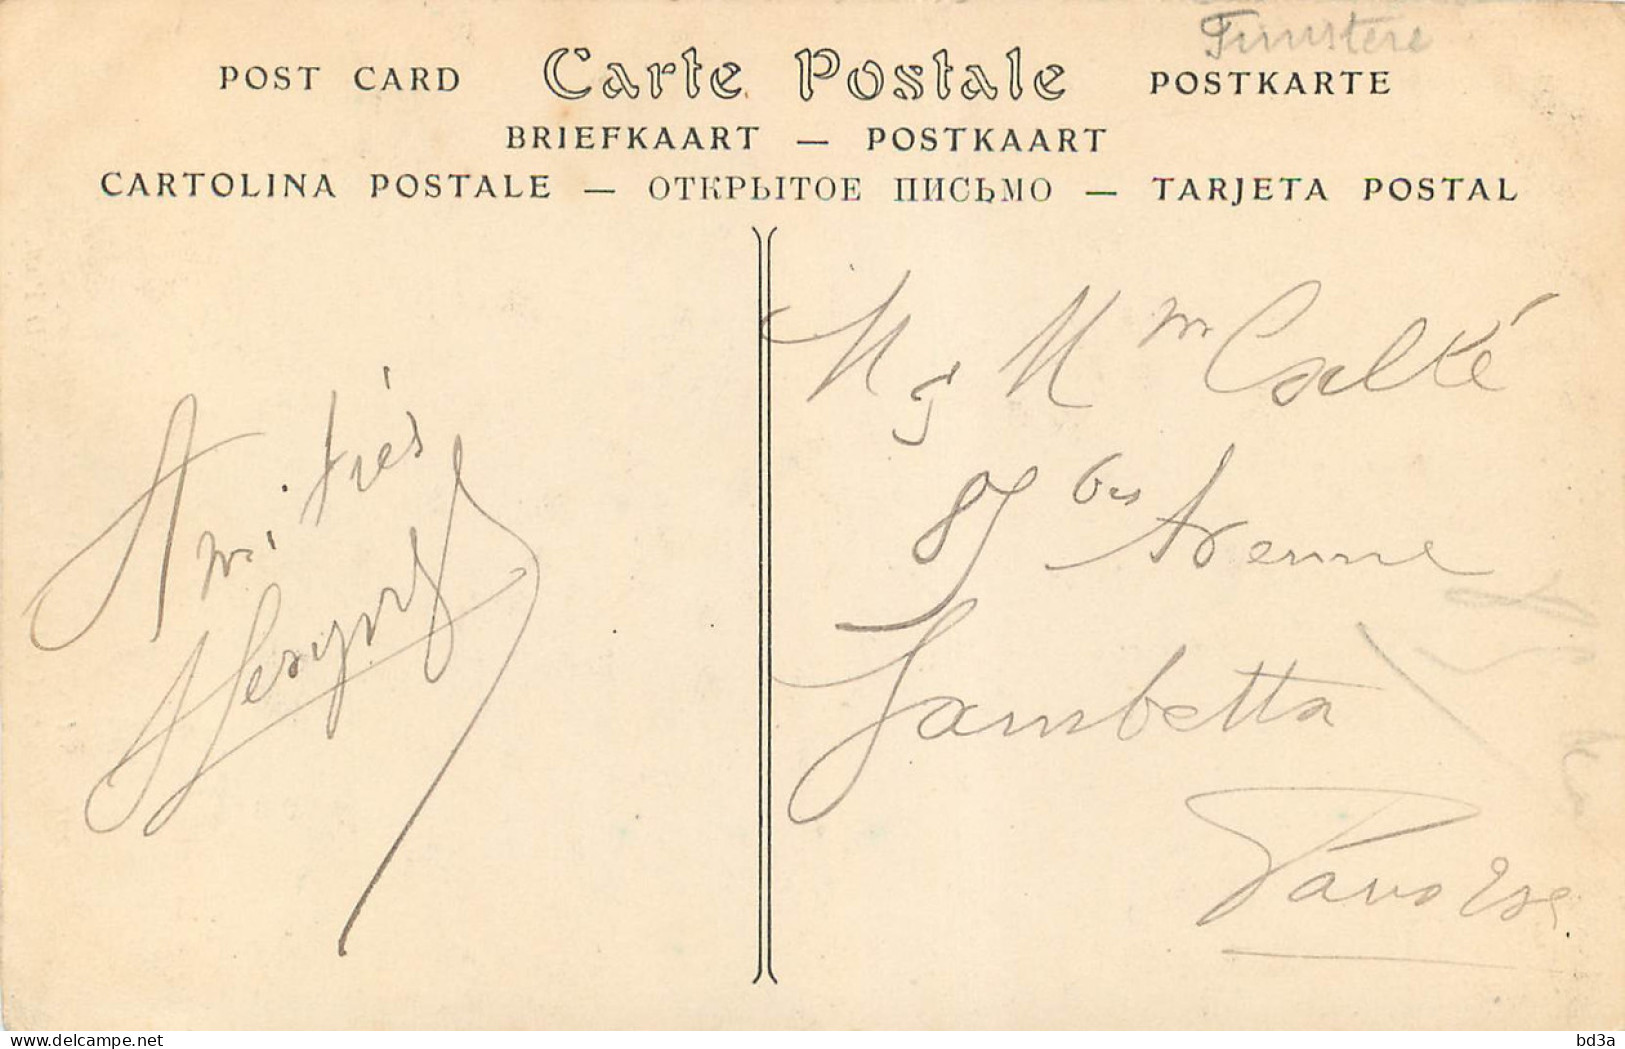 Finistere
POST CARD Carte Postale POSTKARTE
BRIEFKAART — POSTKAART
CARTOLINA POSTALE — ОТКРЫТОЕ ПИСЬМО — TARJETA POSTAL
M
87 bis Avenue
Gambetta
Paris 20e
Amitiés
delcampe.net
bd3a